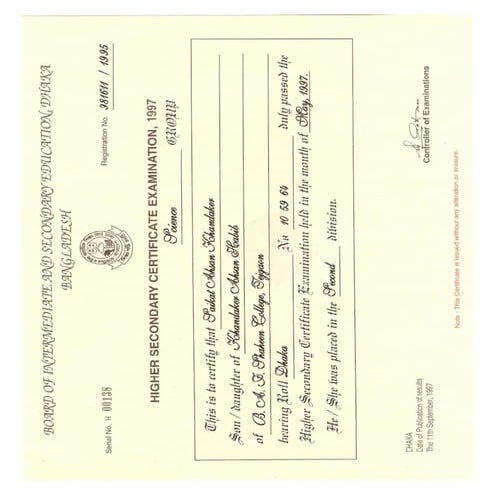 BOARD OF INTERMEDIATE AND SECONDARY EDUCATION, DHAKA
BANGLADESH
Serial No. H 00138
Registration No. 981611 / 1995
HIGHER SECONDARY CERTIFICATE EXAMINATION, 1997
Science GROUP
This is to certify that Saikat Ahsan Khandaker
Son / daughter of Khandaker Ahsan Habib
of B. A. F. Shaheen College, Tejgaon
bearing Roll Dhaka No 10 59 64 duly passed the
Higher Secondary Certificate Examination held in the month of May, 1997.
He / She was placed in the Second division.
DHAKA
Date of Publication of results
The 11th September, 1997
Controller of Examinations
Note : This Certificate is issued without any alteration or erasure.